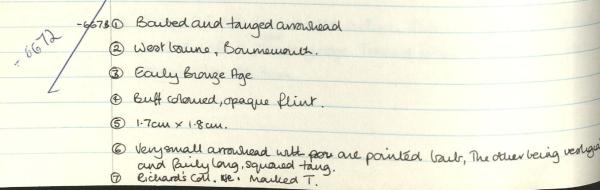 -6673 ① Barbed and tanged arrowhead
-6672
② West bourne, Bournemouth.
③ Early Bronze Age
④ Buff coloured, opaque flint.
⑤ 1.7cm x 1.8cm.
⑥ Very small arrowhead with one pointed barb, The other being vestigial
and fairly long, squared tang.
⑦ Richard's Coll. Marked T.